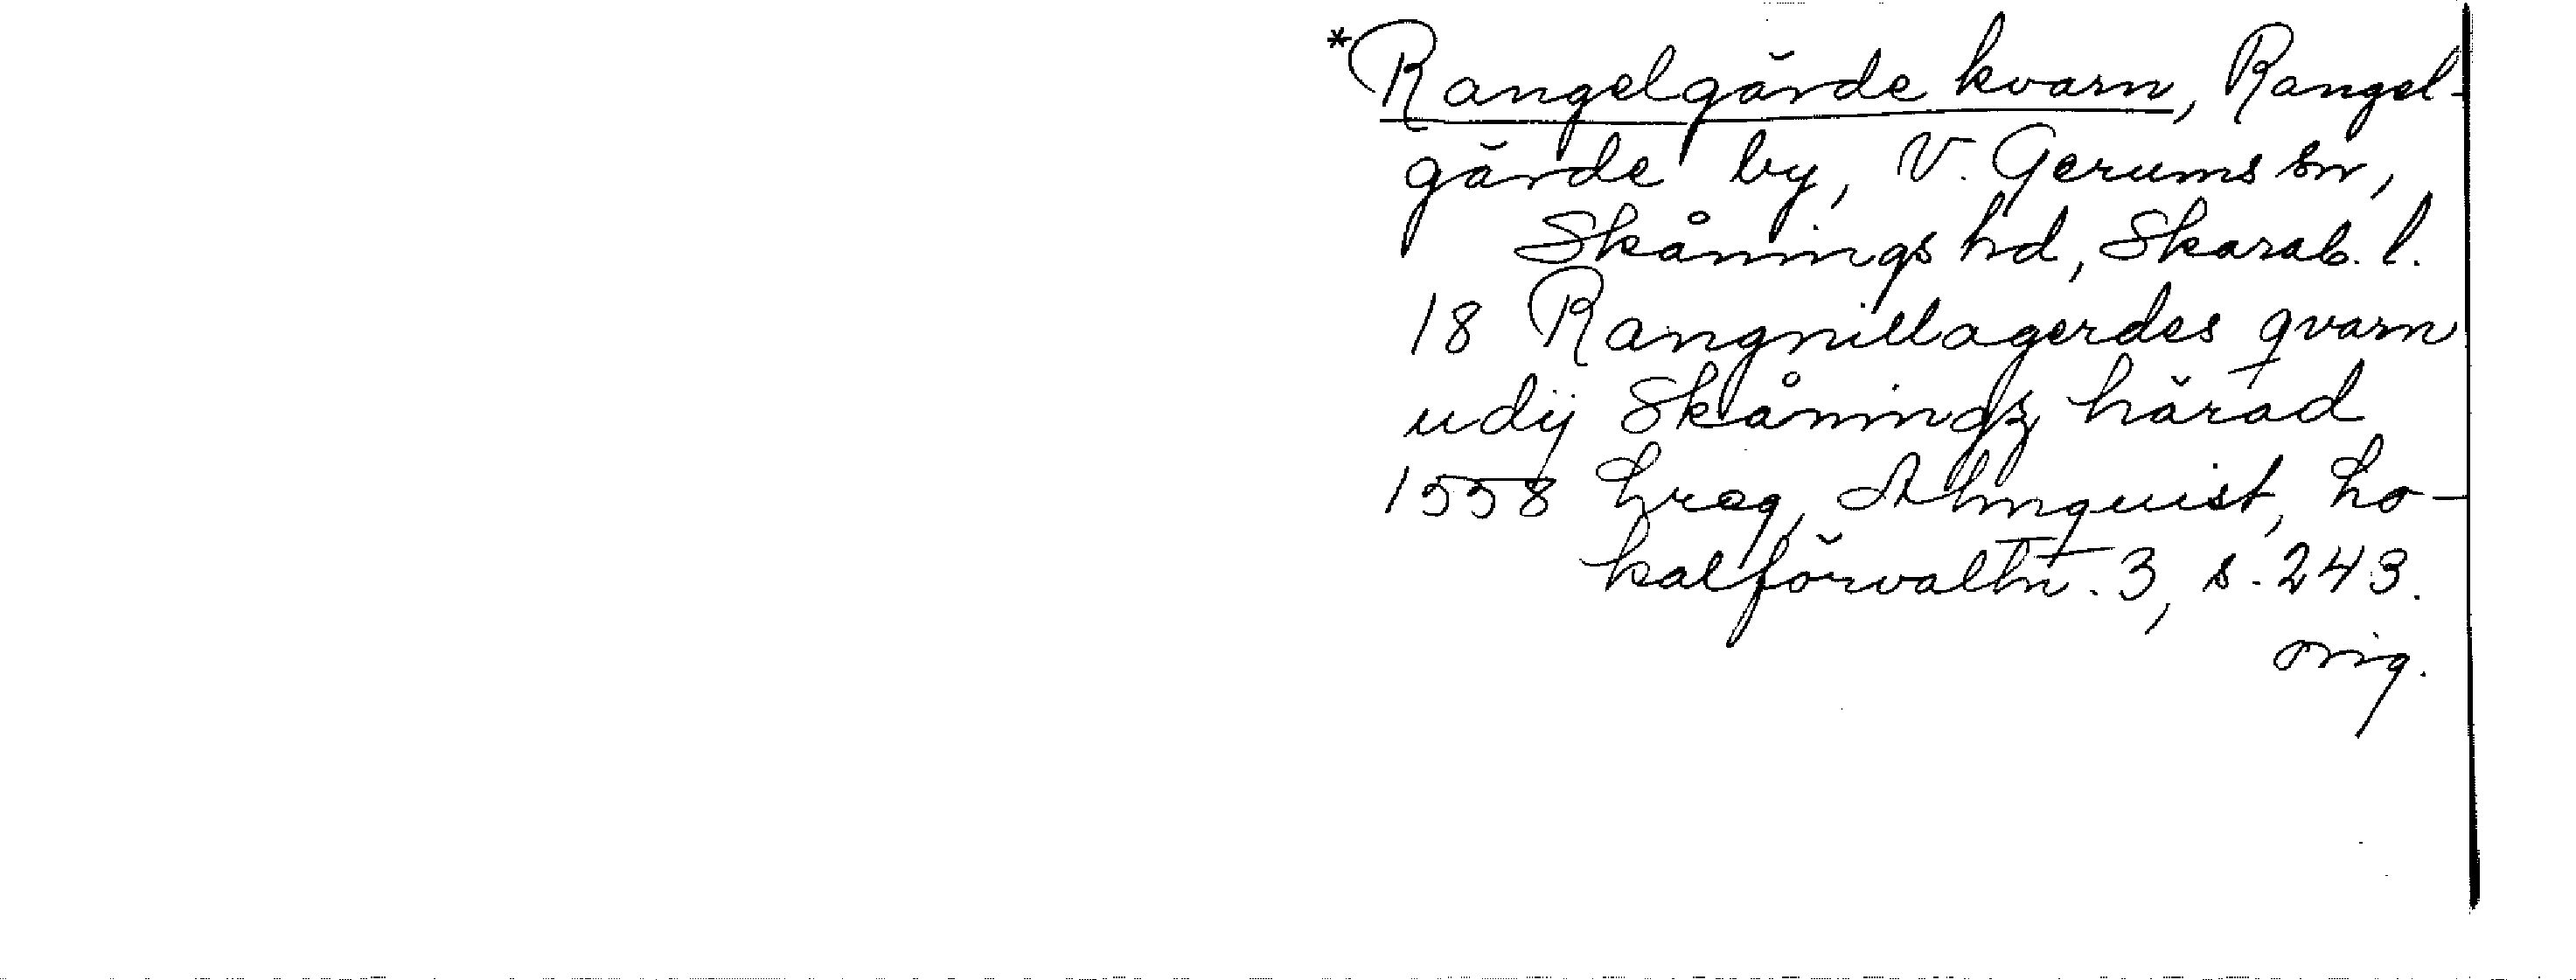 *Rangelgärde kvarn, Rangel-
gärde by, V. Gerums sn,
Skånings hd, Skarab. l.
18 Rangnillagerdes qvarn
udij Skåningz härad
1558 Lreg, Almquist, Lo-
kalförvaltn. 3, s. 243.
orig.